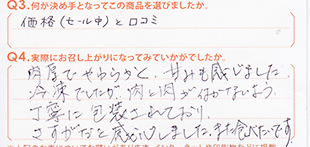 Q3.何が決め手となってこの商品を選びましたか。
価格(セール中)と口コミ
Q4.実際にお召し上がりになってみていかがでしたか。
肉厚でやわらかく、甘みも感じました。
冷凍でしたが肉と肉が付かないよう、
丁寧に包装されており、
さすがだと感心しました。また食べたいです。